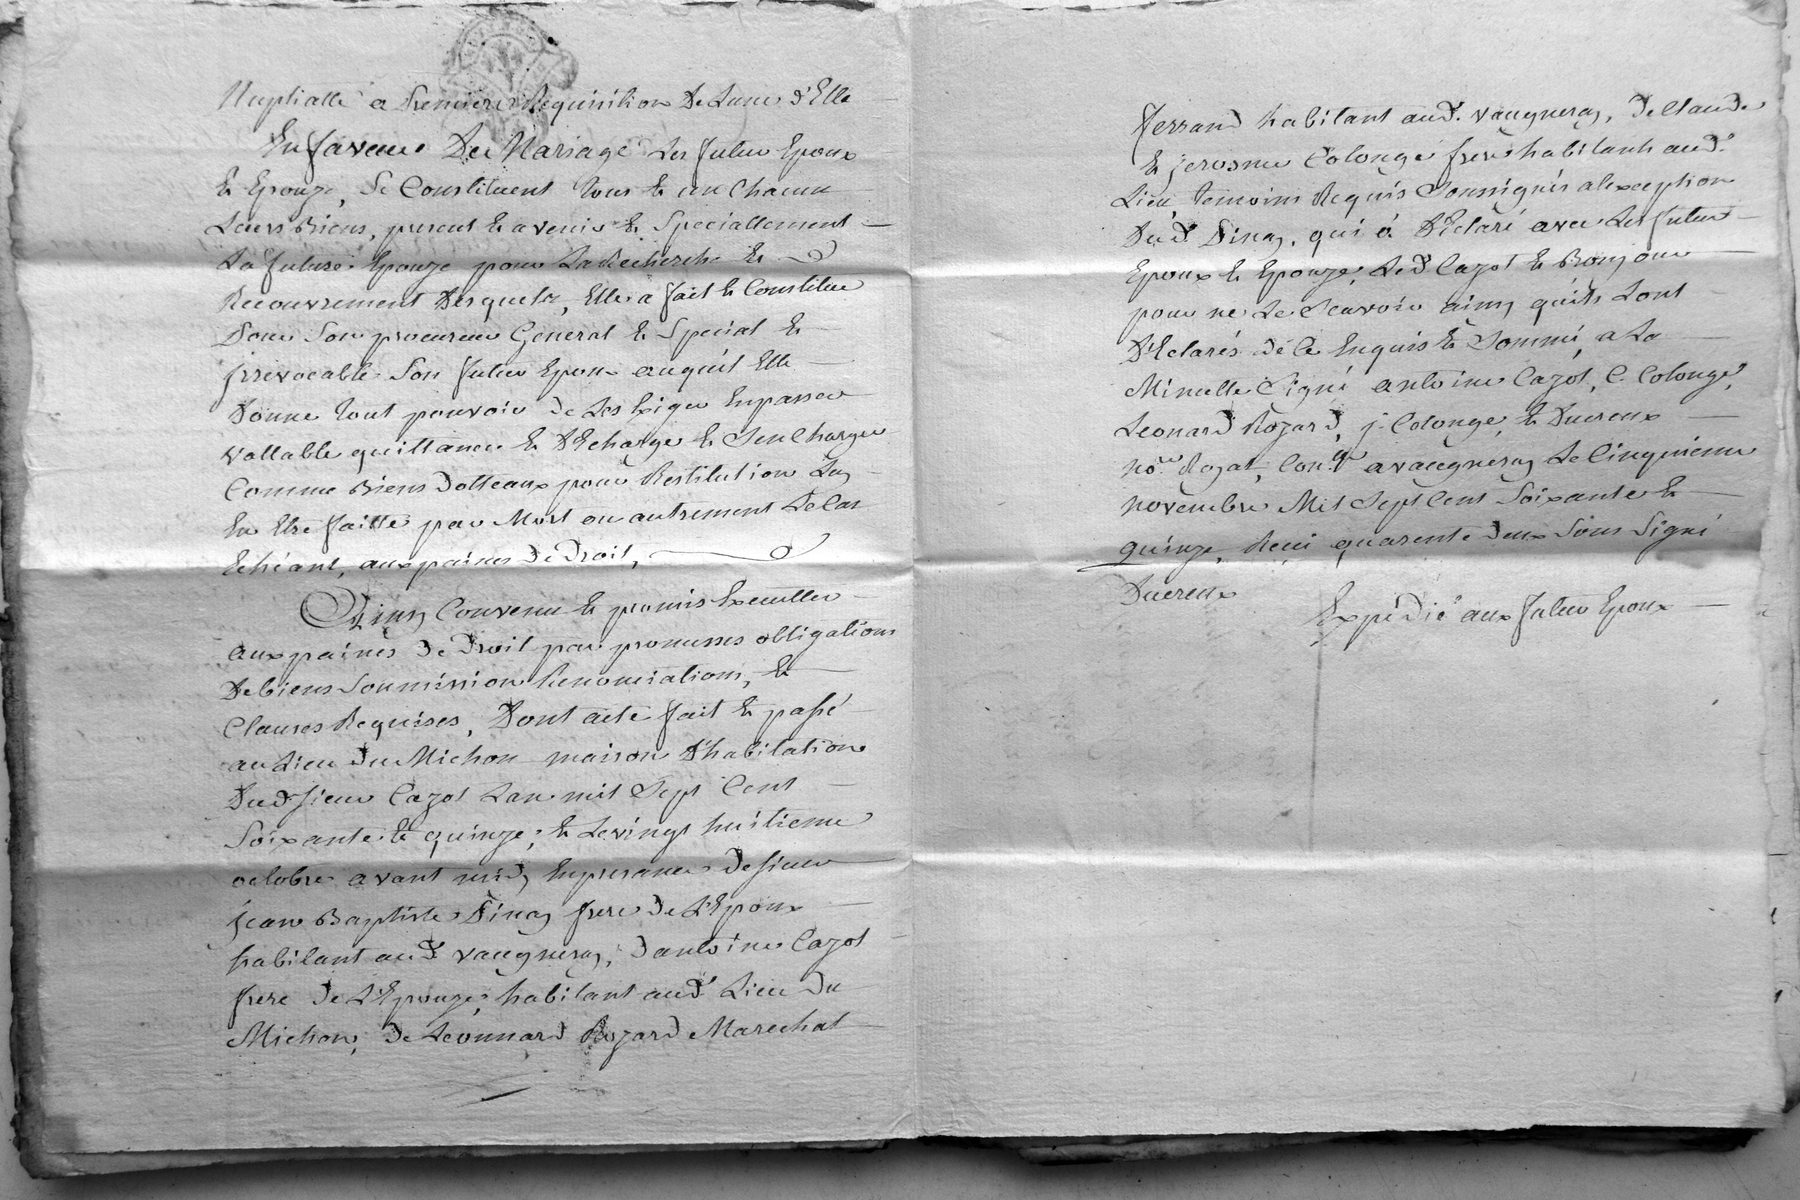 Nuptialle a Premiere Requisition De Lune d'Elle
En faveur Du Mariage Les futur Epoux
Et Epouze, Se Constituent tous Et un Chacun
Leurs Biens, present Et avenir Et Speciallement
La future Epouze pour La Recherche Et
Recouvrement Desquels, Elle a fait Et Constitue
Pour Son procureur General Et Special Et
jrrevocable Son futur Epoux auquel Elle
Donne tout pouvoir De Les Exiger En passer
vallable quittance Et DEcharge Et Sen Charger
Comme Biens Dotteaux pour Restitution Luy
En Etre faitte par Mort ou autrement Le Cas
Echéant, aux paines De Droit,
Ainsy Convenu Et promis Executter
aux paines De Droit par promesses obligations
De biens Soumission Renonciations, Et
Clauses Requises, Dont acte fait Et passé
au Lieu Du Michon maison D'habitation
Dud. sieur Cazot Lan mil Sept Cent
Soixante Et quinze, Et Le vingt huitieme
octobre avant midy En presance De sieur
jean Baptiste Pinay frere De L'Epoux
habilant aud. vaugneray, D'antoine Cazot
frere De L'Epouze habitant aud. Lieu Du
Michon, De Leonnard Rozard Marechal
ferrand habitant aud. vaugneray, De Claude
Et jerosme Colonge frere habitants aud.
Lieu, temoins Requis Soussignés alexception
Dud. Pinay, qui a DEclaré avec Les futur
Epoux Et Epouze, Led. Cazot Et Bonjour
pour ne Le Scavoir ainsy quils Lont
DEclarés de Ce Enquis Et Sommé, a La
Minutte Signé antoine Cazot, C. Colonge,
Leonard Rozard, j. Colonge, Et Ducreux
nore. Royal, Con.lé a vaugneray Le Cinquieme
novembre Mil Sept Cent Soixante Et
quinze, Receu quarente deux Sous Signé
Ducreux
Expédié aux futur Epoux